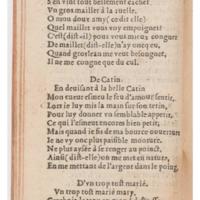 S'en vint tout bellement cacher
Vn gros maillet à la ruelle.
O mon doux amy (ce dit elle)
Quel maillet vous voy empoigner?
C'est (dist-il) pour vous mieux congner
De maillet (dist-elle) n'y onc eu,
Quand gros Iean me veut besongner,
Il ne me congne que du cul.
De Catin.
En deuisant à la belle Catin
Mon cueur esmeu le feu d'amour sentit,
Lors ie luy mis la main sur son tetin,
Pour luy donner vn semblable appetit,
Ce qui l'esmeut encores bien petit,
Mais quand ie fis de ma bourse ouuerture
Ie ne vy onc plus paisible monture,
Ne plus aysée à renger au poinct,
Ainsi (dist-elle) on me met en nature,
En me mettant de l'argent dans le poing.
D'vn trop tost marié.
Vn trop tost marié mary,